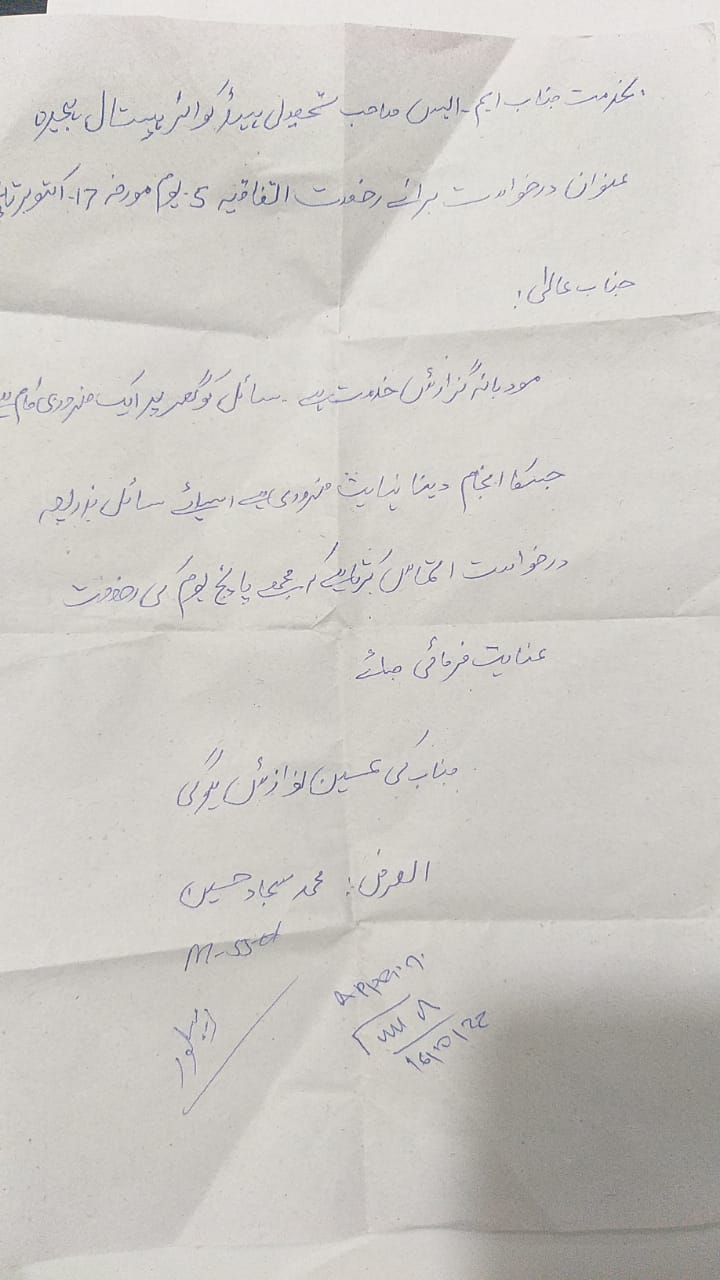 بخدمت جناب ایم-ایس صاحب تحصیل ہیڈ کوائر ہسپتال ہجیرہ
عنوان درخواست برائے رخصت اتفاقیہ 5-یوم مورخہ 17-اکتوبر تا
جناب عالی!
مودبانہ گزارش خدمت ہے۔ سائل کو گھر پر ایک ضروری کام ہے
جسکا انجام دینا نہایت ضروری ہے اسلئے سائل بذریعہ
درخواست التماس کرتا ہے کہ مجھے پانچ یوم کی رخصت
عنایت فرمائی جائے
جناب کی عین نوازش ہوگی
العرض: محمد سجاد حسین
16/10/22